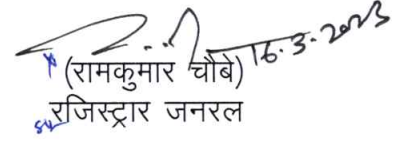 16.3.2023
(रामकुमार चौबे)
रजिस्ट्रार जनरल